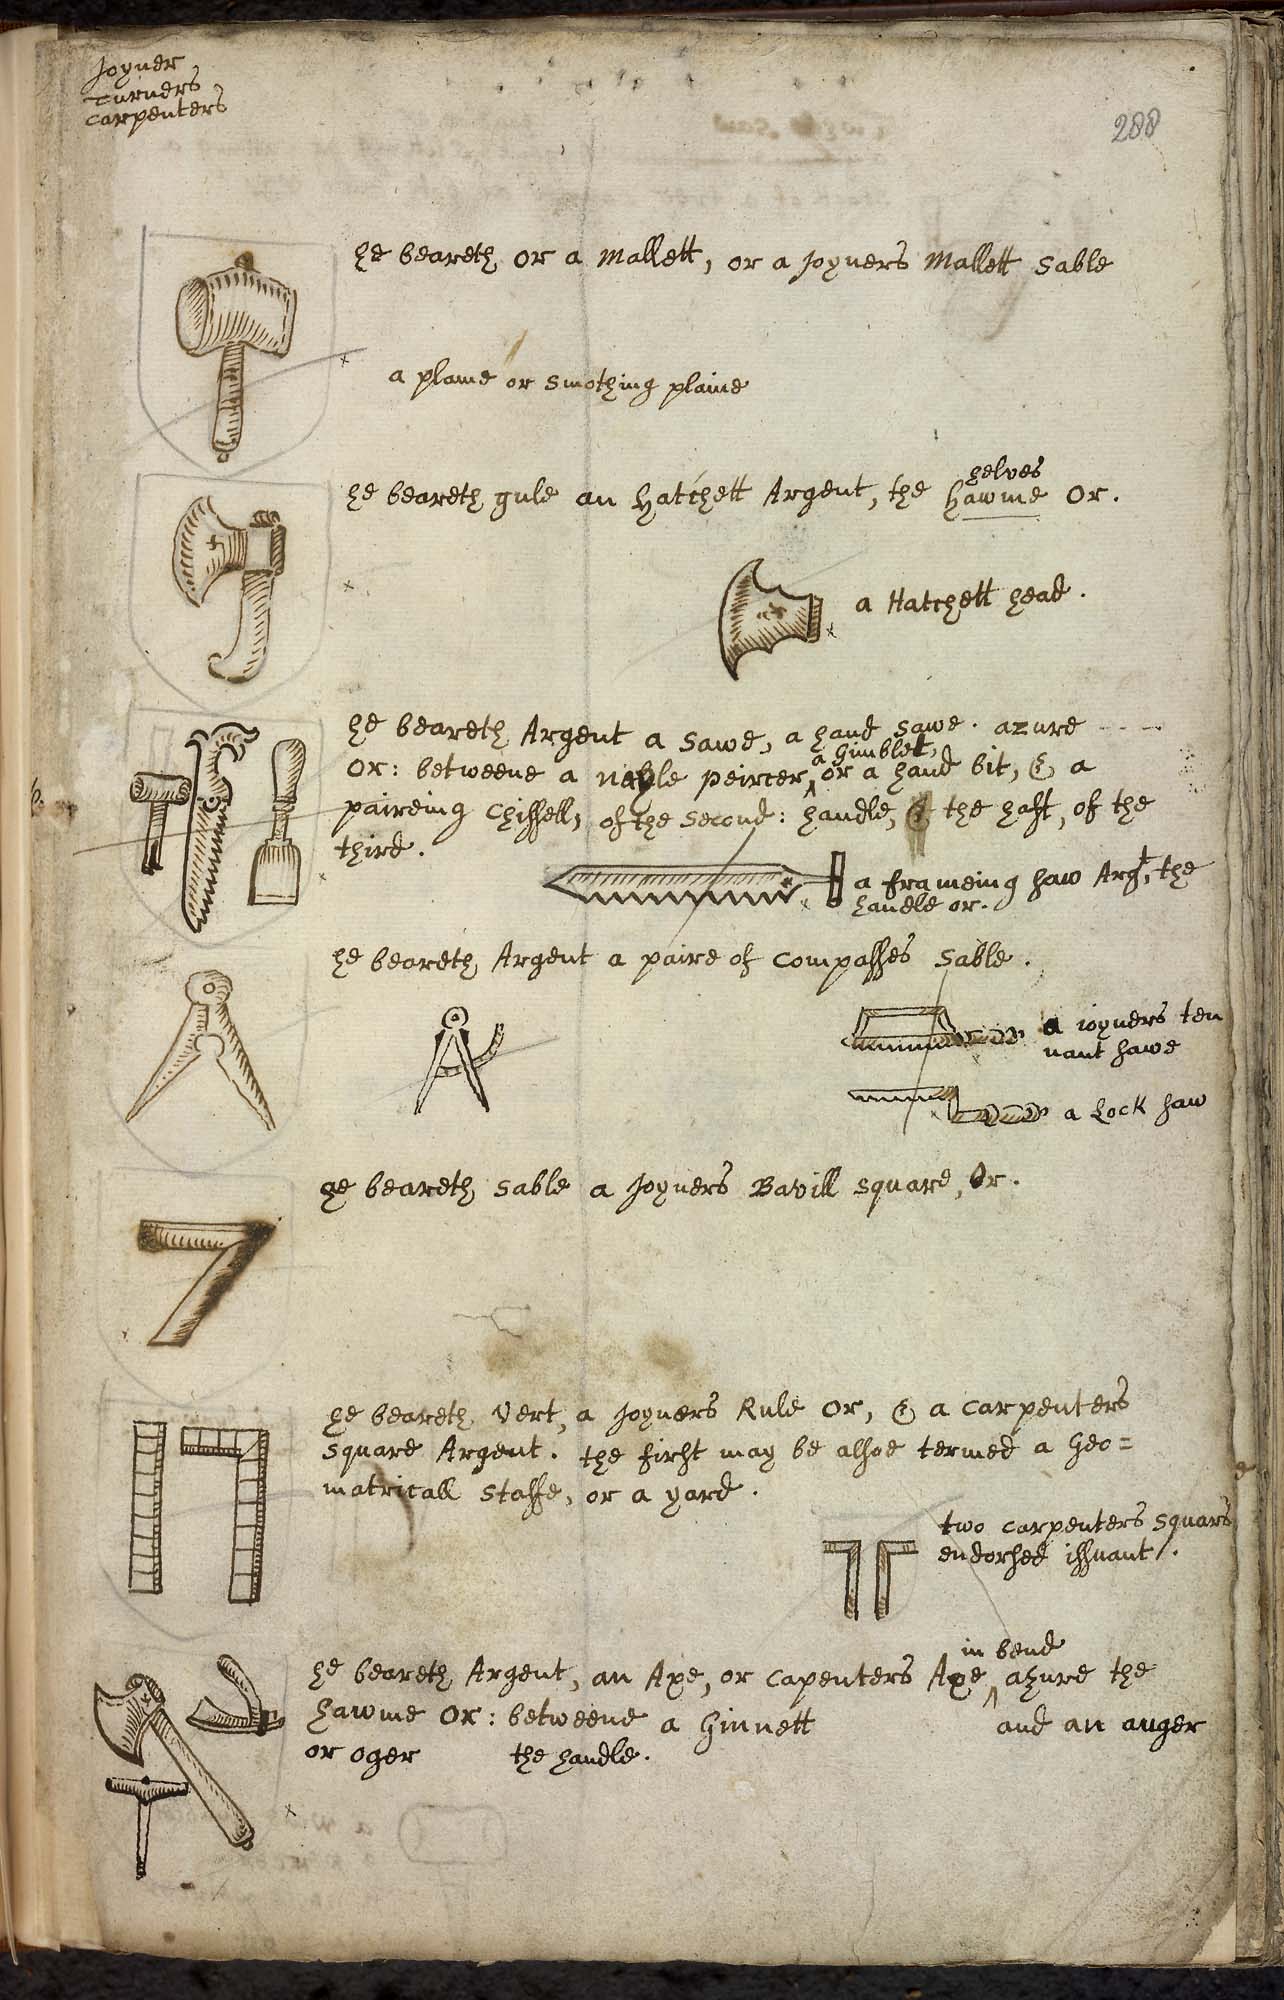 Joyner
Turners
Carpenters
288
he beareth or a Mallett, or a Joyners Mallett Sable
a plaine or smothing plaine
helves
he beareth gule an Hatchett Argent, the hawme Or.
a Hatchett head.
he beareth Argent a Sawe, a hand Sawe. azure
a Gimblet,
Or: betweene a naile peircer, or a hand bit, & a
paireing Chissell, of the Second: handle, & the haft, of the
third.
a frameing saw Argt, the
handle or.
he beareth Argent a paire of Compasses Sable.
a joyners ten
nant sawe
a Lock saw
he beareth Sable a Joyners Bavill square, Or.
he beareth Vert, a Joyners Rule Or, & a Carpenters
square Argent. the first may be alsoe termed a Geo=
matricall staffe, or a yard.
two Carpenters squars
endorsed issuant.
in bend
he beareth Argent, an Axe, or Capenters Axe, azure the
hawme Or: betweene a Ginnett and an auger
or oger the handle.